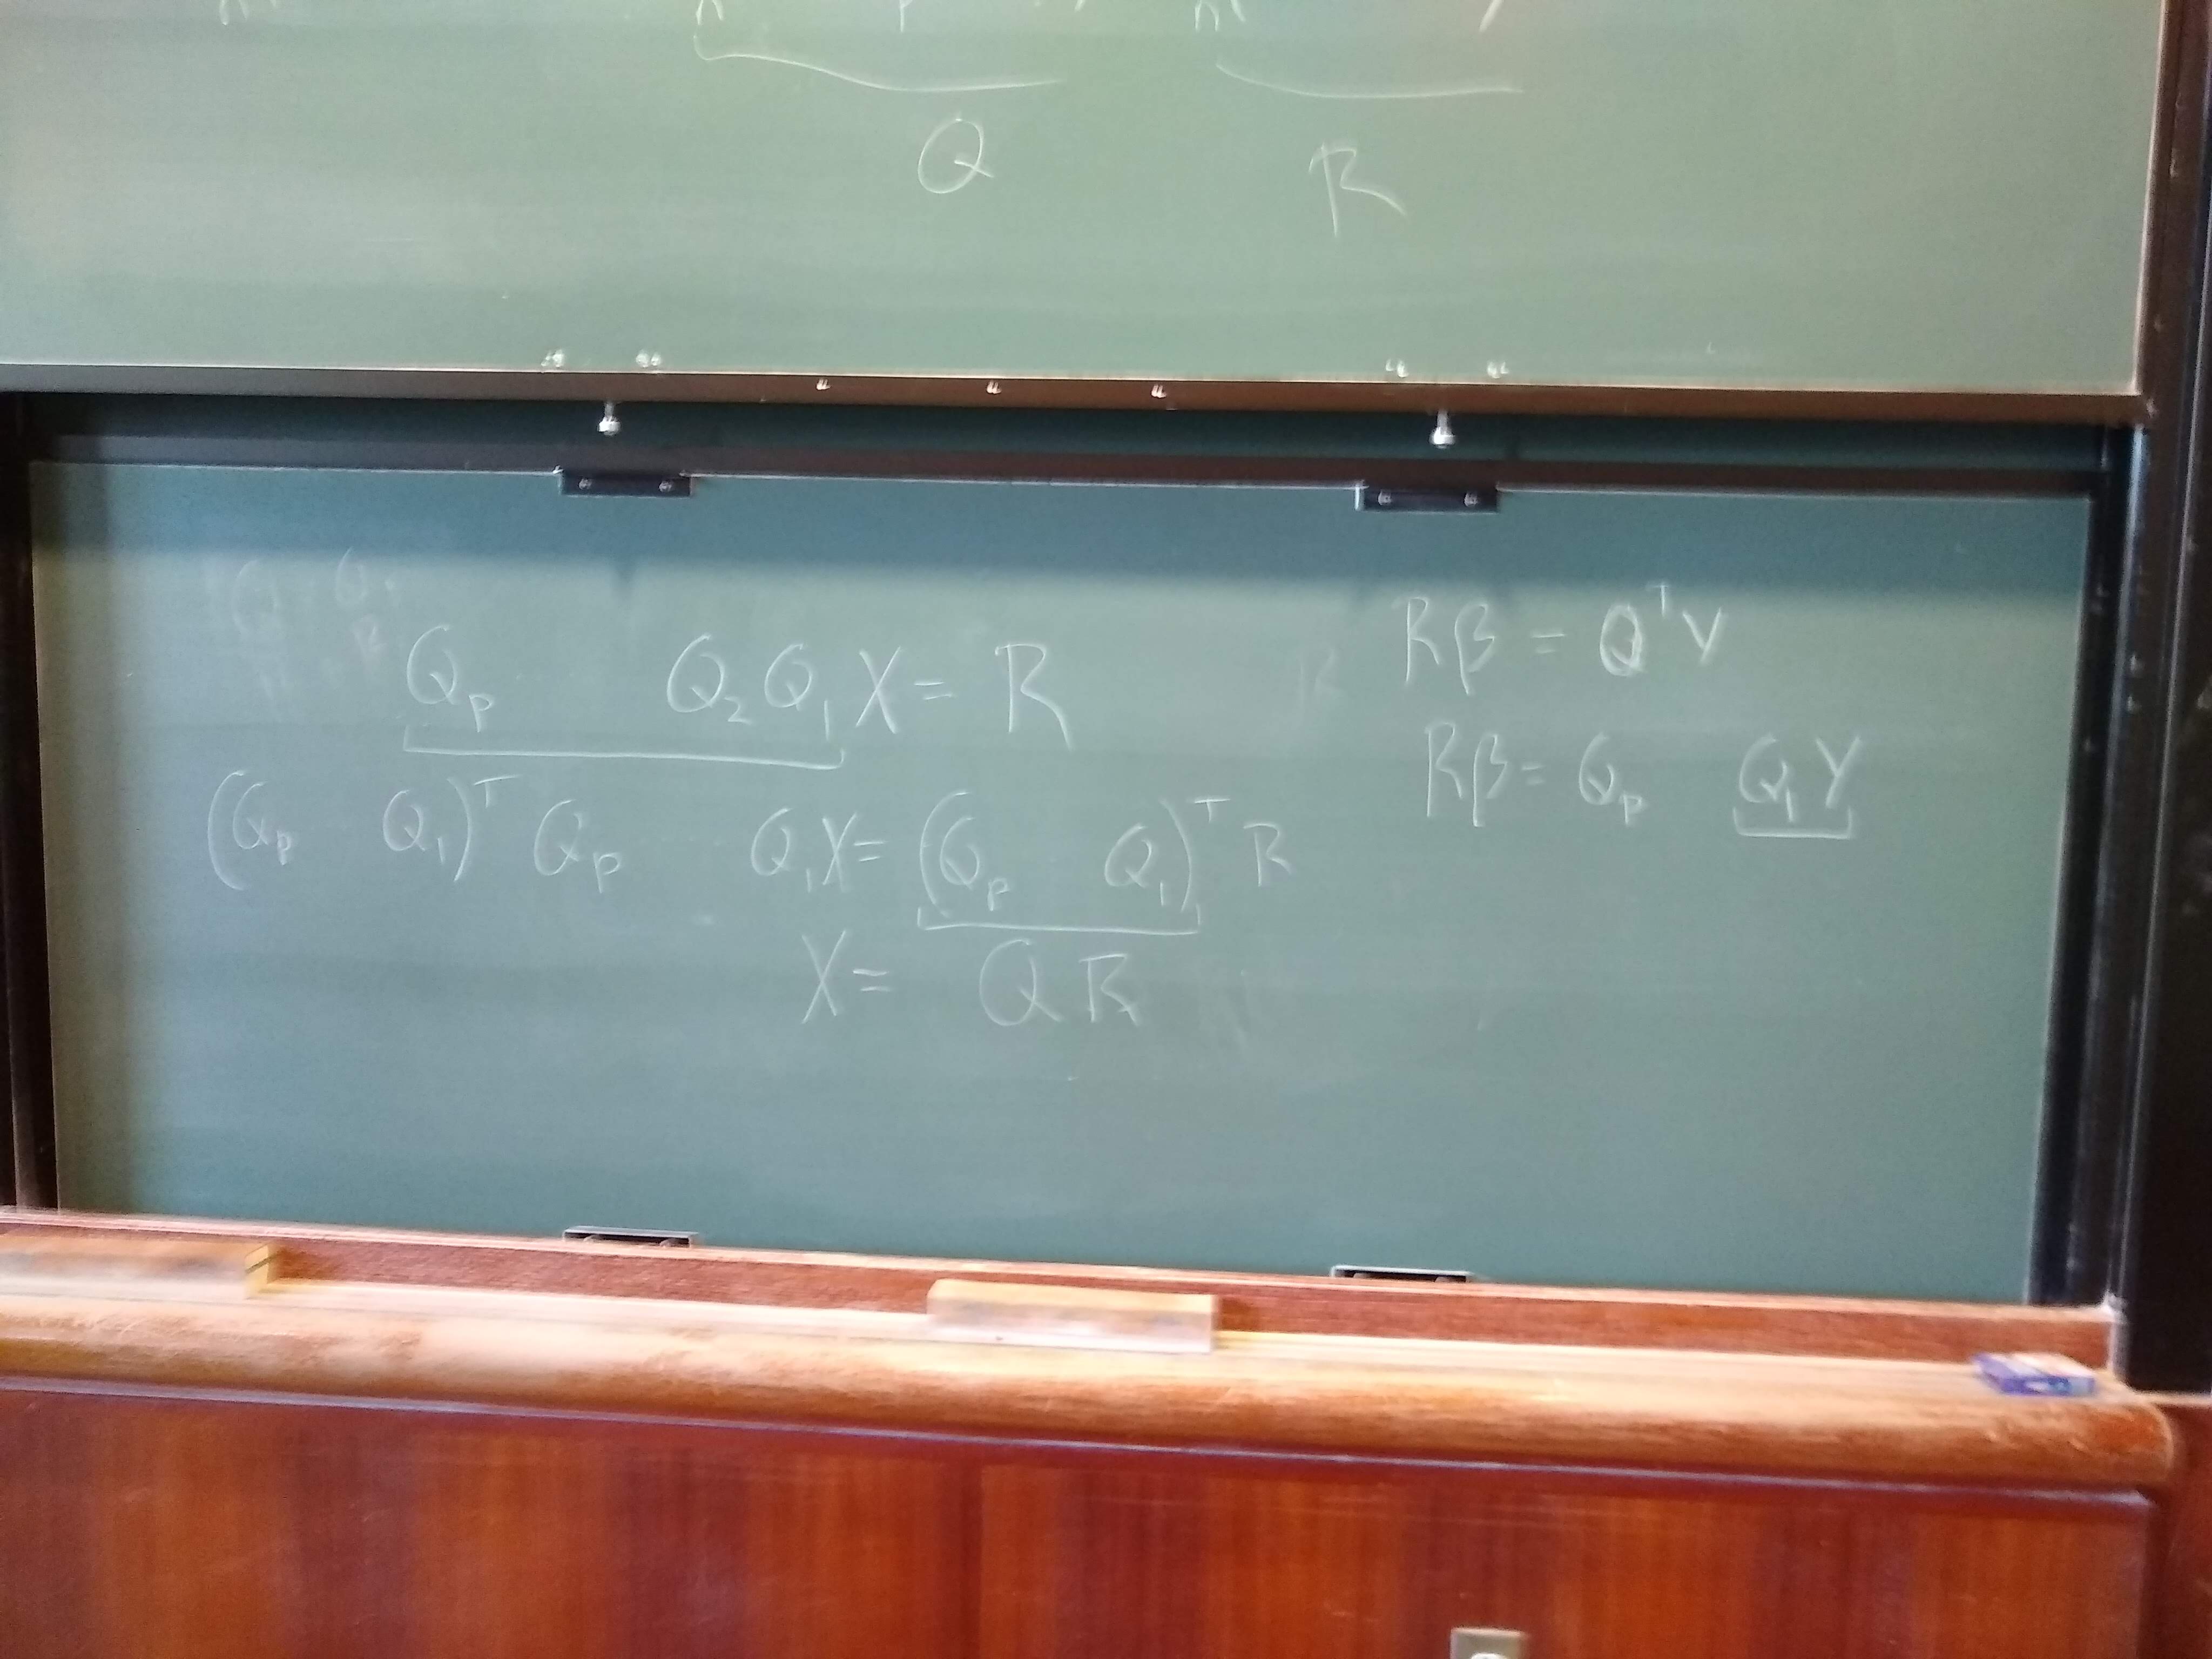 Q R
Q_p Q_2 Q_1 X = R
(Q_p Q_1)^T Q_p Q_1 X = (Q_p Q_1)^T R
X = Q R
Rβ = Q^T Y
Rβ = Q_p Q_1 Y